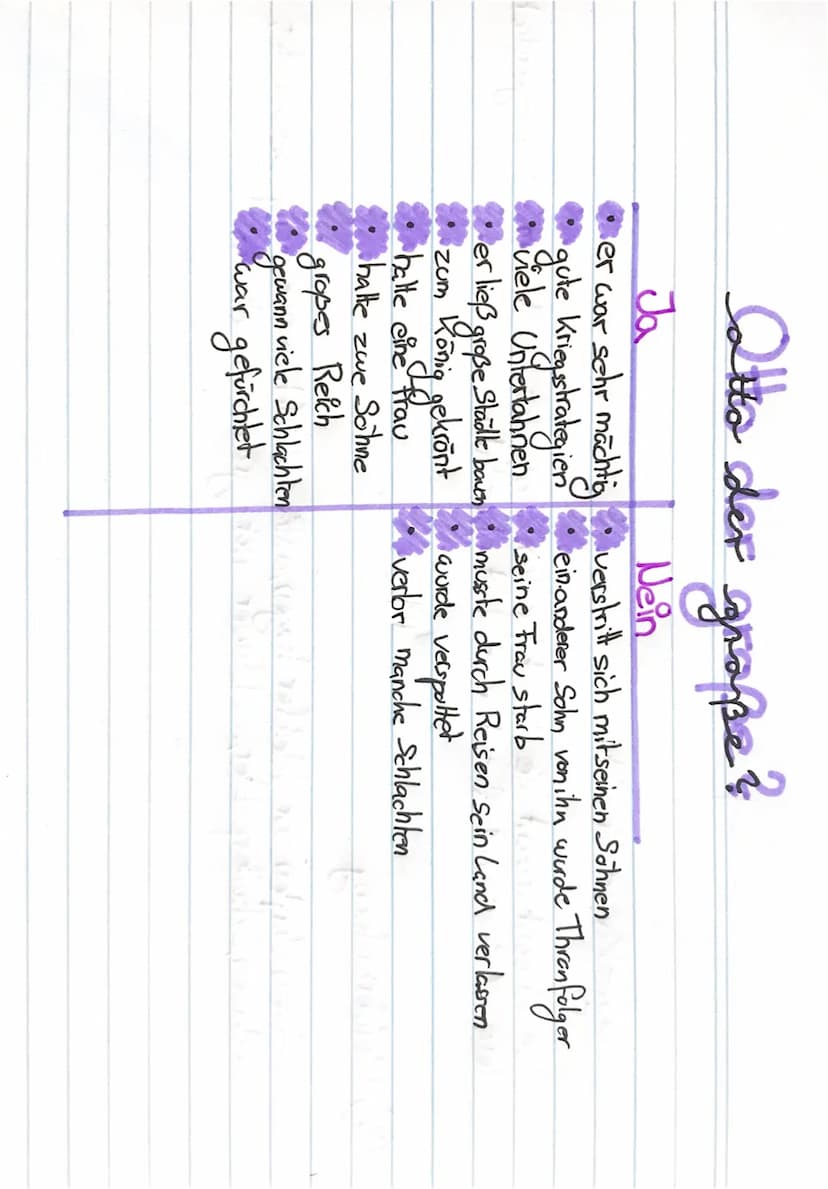 Otto der große?
Ja
er war sehr mächtig
gute Kriegsstrategien
viele Untertahnen
er ließ große Städte bauen
zum König gekrönt
hatte eine Frau
hatte zwe Söhne
großes Reich
gewann viele Schlachten
war gefürchtet
Nein
verstritt sich mit seinen Söhnen
ein anderer Sohn von ihn wurde Thronfolger
seine Frau starb
musste durch Reisen sein Land verlassen
wurde verspottet
verlor manche Schlachten